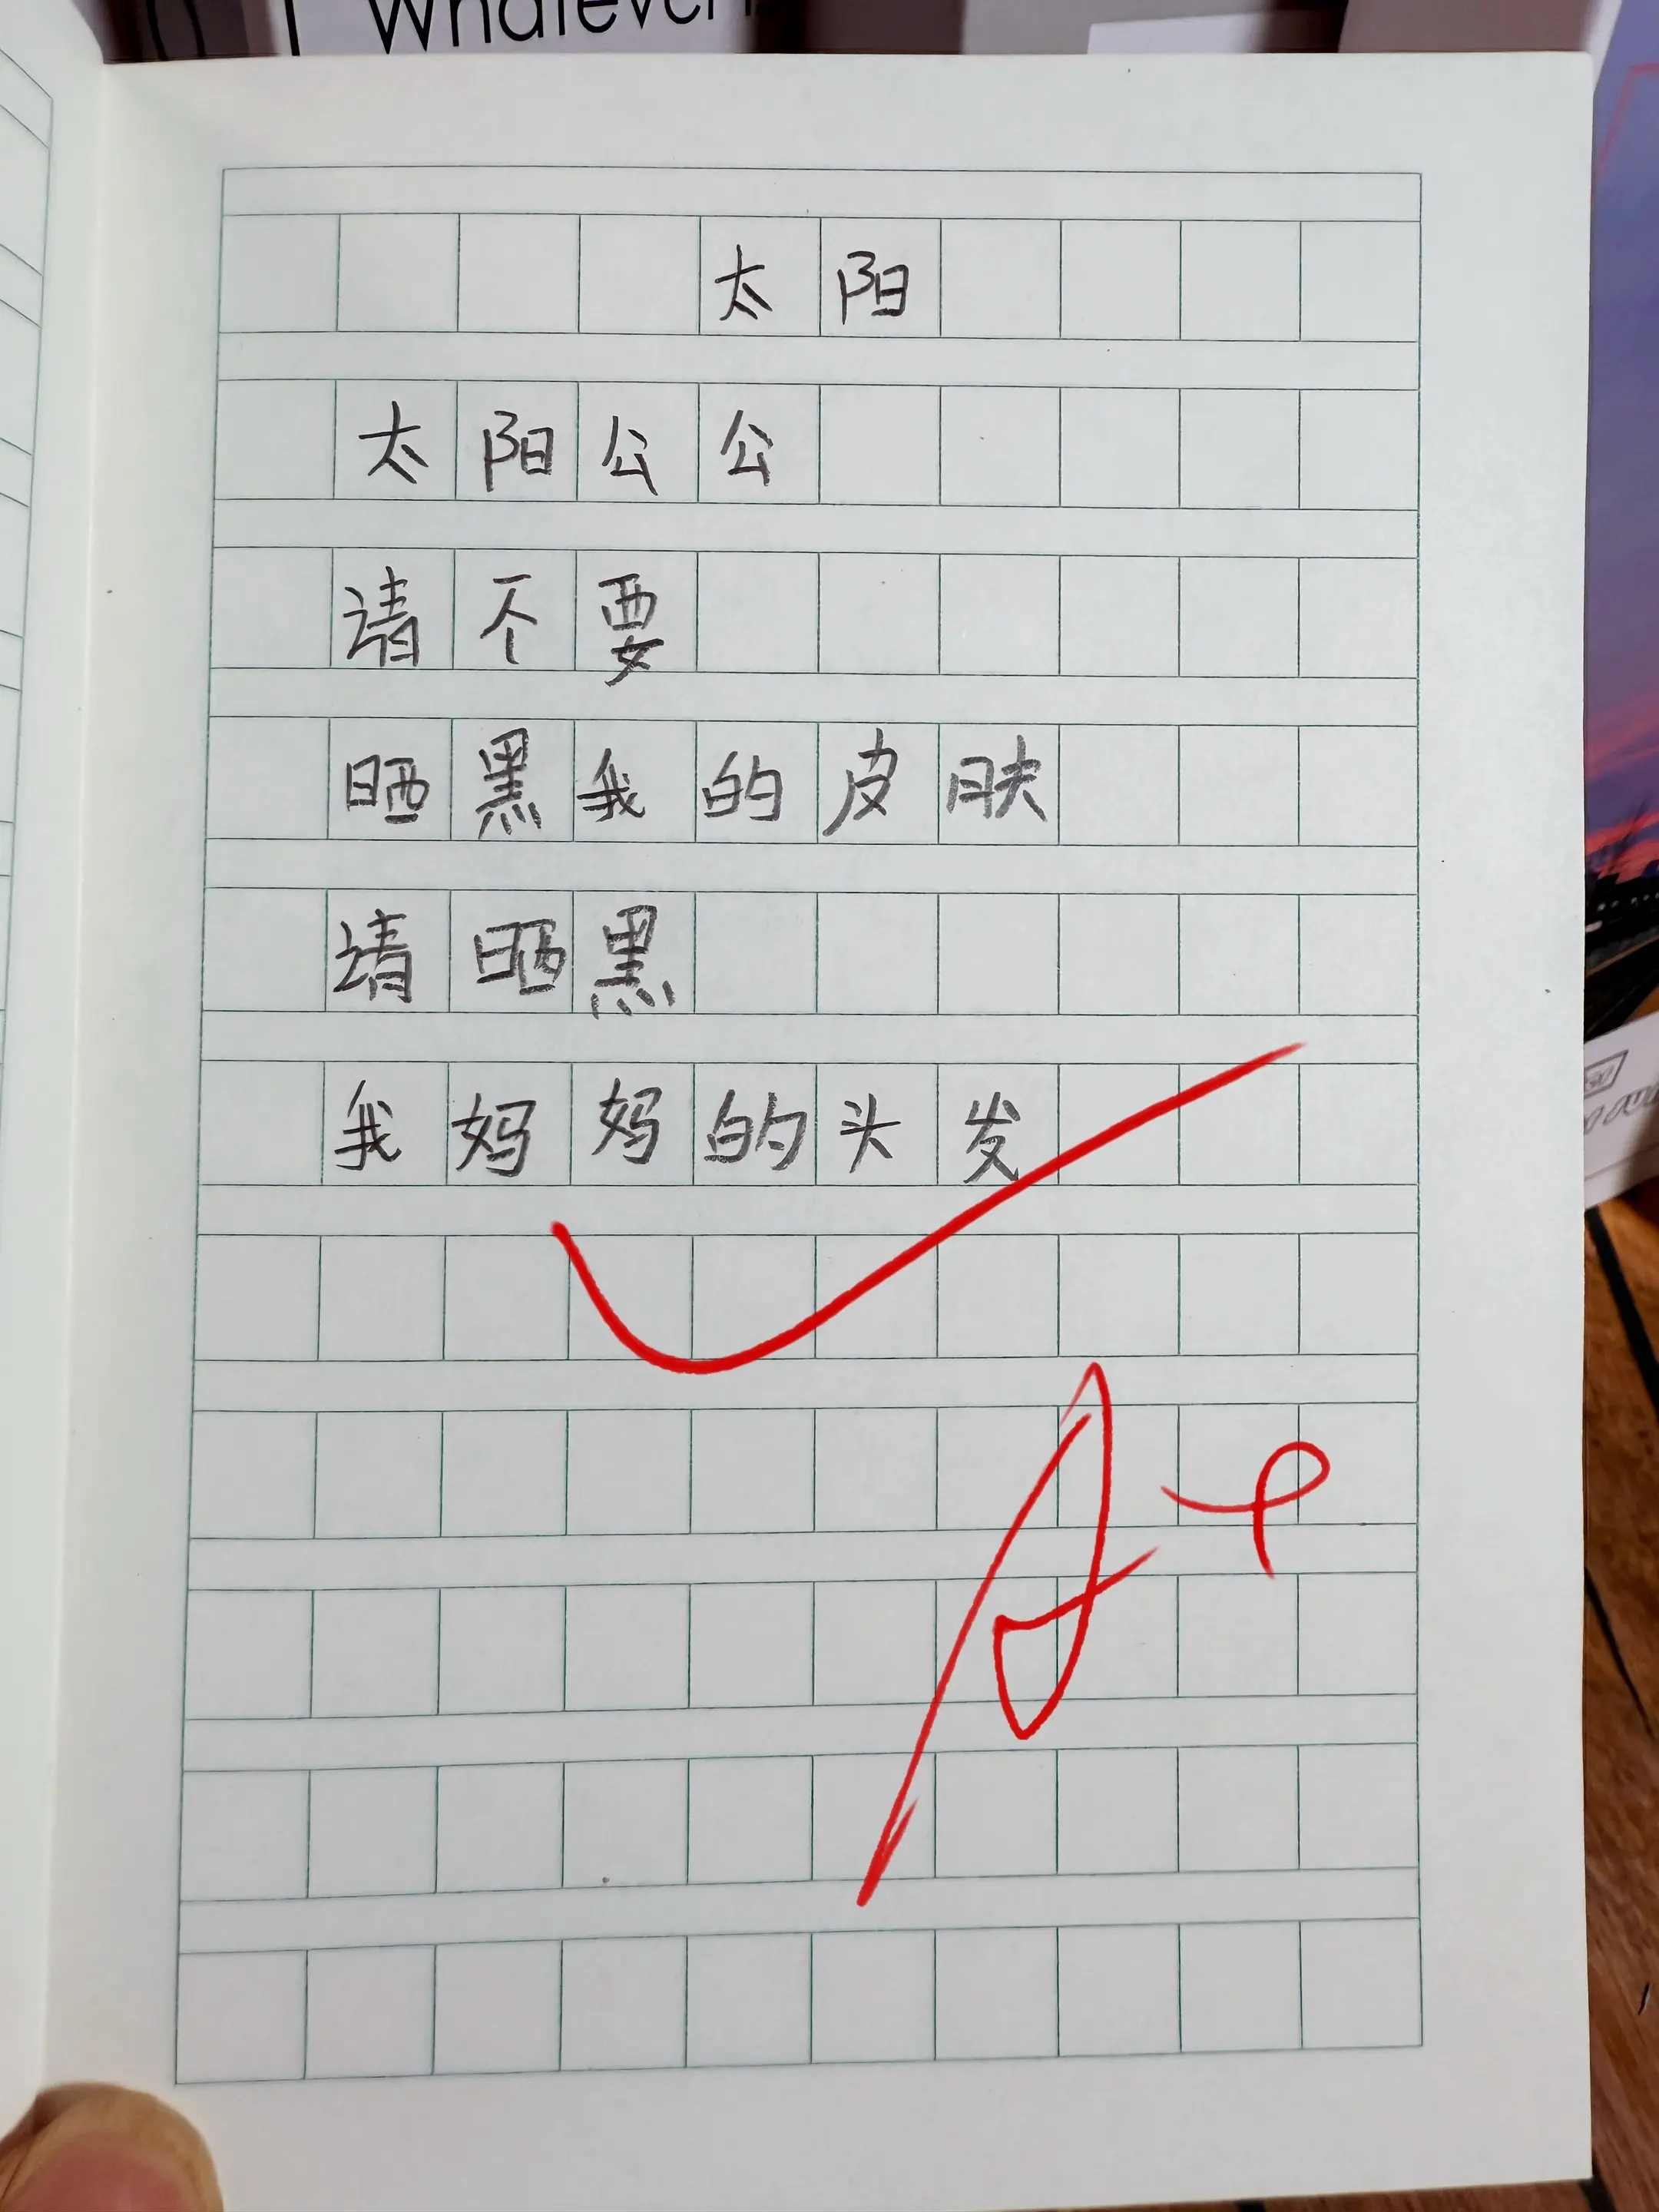 Whatever
太阳
太阳公公
请不要
晒黑我的皮肤
请晒黑
我妈妈的头发
A+